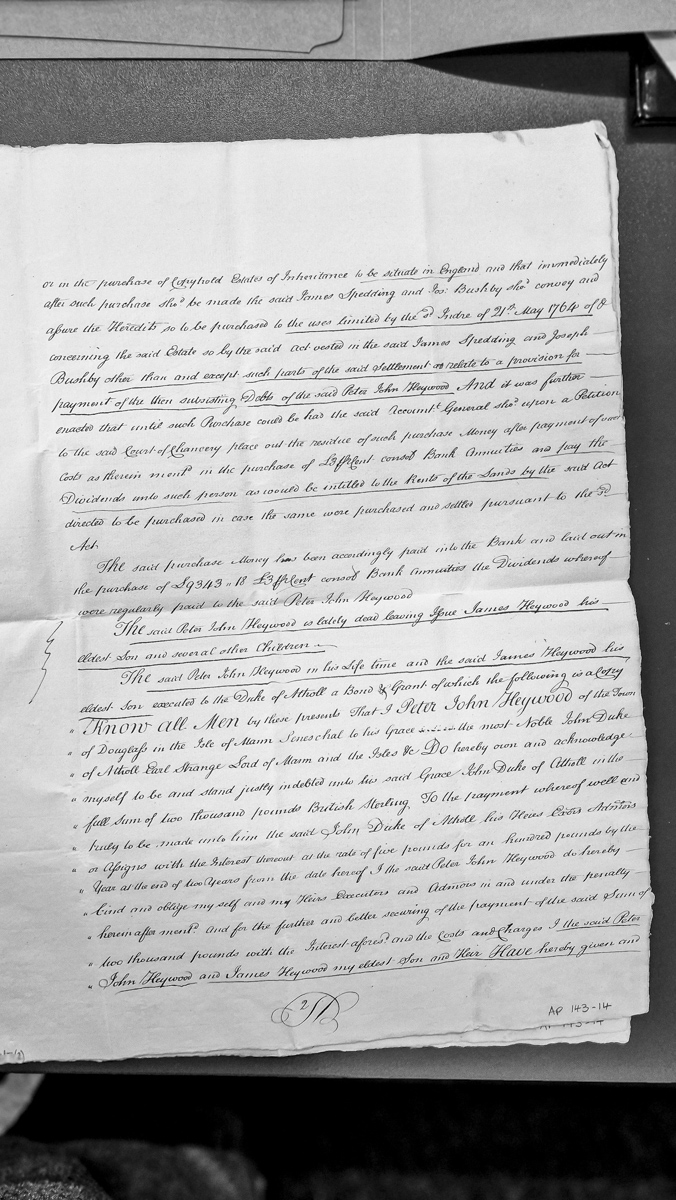 or in the purchase of Copyhold Estates of Inheritance to be situate in England and that immediately
after such purchase sho.d be made the said James Spedding and Jos: Bushby sho.d convey and
assure the Heredits so to be purchased to the uses limited by the s.d Indre of 21.st May 1764 of &
concerning the said Estate so by the said Act vested in the said James Spedding and Joseph
Bushby other than and except such parts of the said Settlement as relate to a provision for
payment of the then subsisting Debts of the said Peter John Heywood And it was further
enacted that until such Purchase could be had the said Account.t General sho.d upon a Petition
to the said Court of Chancery place out the residue of such purchase Money after payment of such
Costs as therein ment.d in the purchase of £3 ⅌ Cent consol Bank Annuities and pay the
Dividends unto such person as would be intitled to the Rents of the Lands by the said Act
directed to be purchased in case the same were purchased and settled pursuant to the s.d
Act.
The said purchase Money has been accordingly paid into the Bank and laid out in
the purchase of £9343 " 18 £3 ⅌ Cent consol Bank Annuities the Dividends whereof
were regularly paid to the said Peter John Heywood
The said Peter John Heywood is lately dead leaving Issue James Heywood his
eldest Son and several other Children.
The said Peter John Heywood in his Life time and the said James Heywood his
eldest Son executed to the Duke of Atholl a Bond & Grant of which the following is a Copy
" Know all Men by these presents That I Peter John Heywood of the Town
" of Douglass in the Isle of Mann Seneschal to his Grace the most Noble John Duke
" of Atholl Earl Strange Lord of Mann and the Isles &c Do hereby own and acknowledge
" myself to be and stand justly indebted unto his said Grace John Duke of Atholl in the
" full Sum of two thousand pounds British Sterling To the payment whereof well and
" truly to be made unto him the said John Duke of Atholl his Heirs Exors Admtors
" or Assigns with the Interest thereout at the rate of five pounds for an hundred pounds by the
" Year at the end of two Years from the date hereof I the said Peter John Heywood do hereby
" bind and oblige my self and my Heirs Executors and Admors in and under the penalty
" herein after ment.d And for the further and better securing of the payment of the said Sum of
" two thousand pounds with the Interest afores.d and the Costs and Charges I the said Peter
" John Heywood and James Heywood my eldest Son and Heir Have hereby given and
2
AP 143-14
AP 143-14